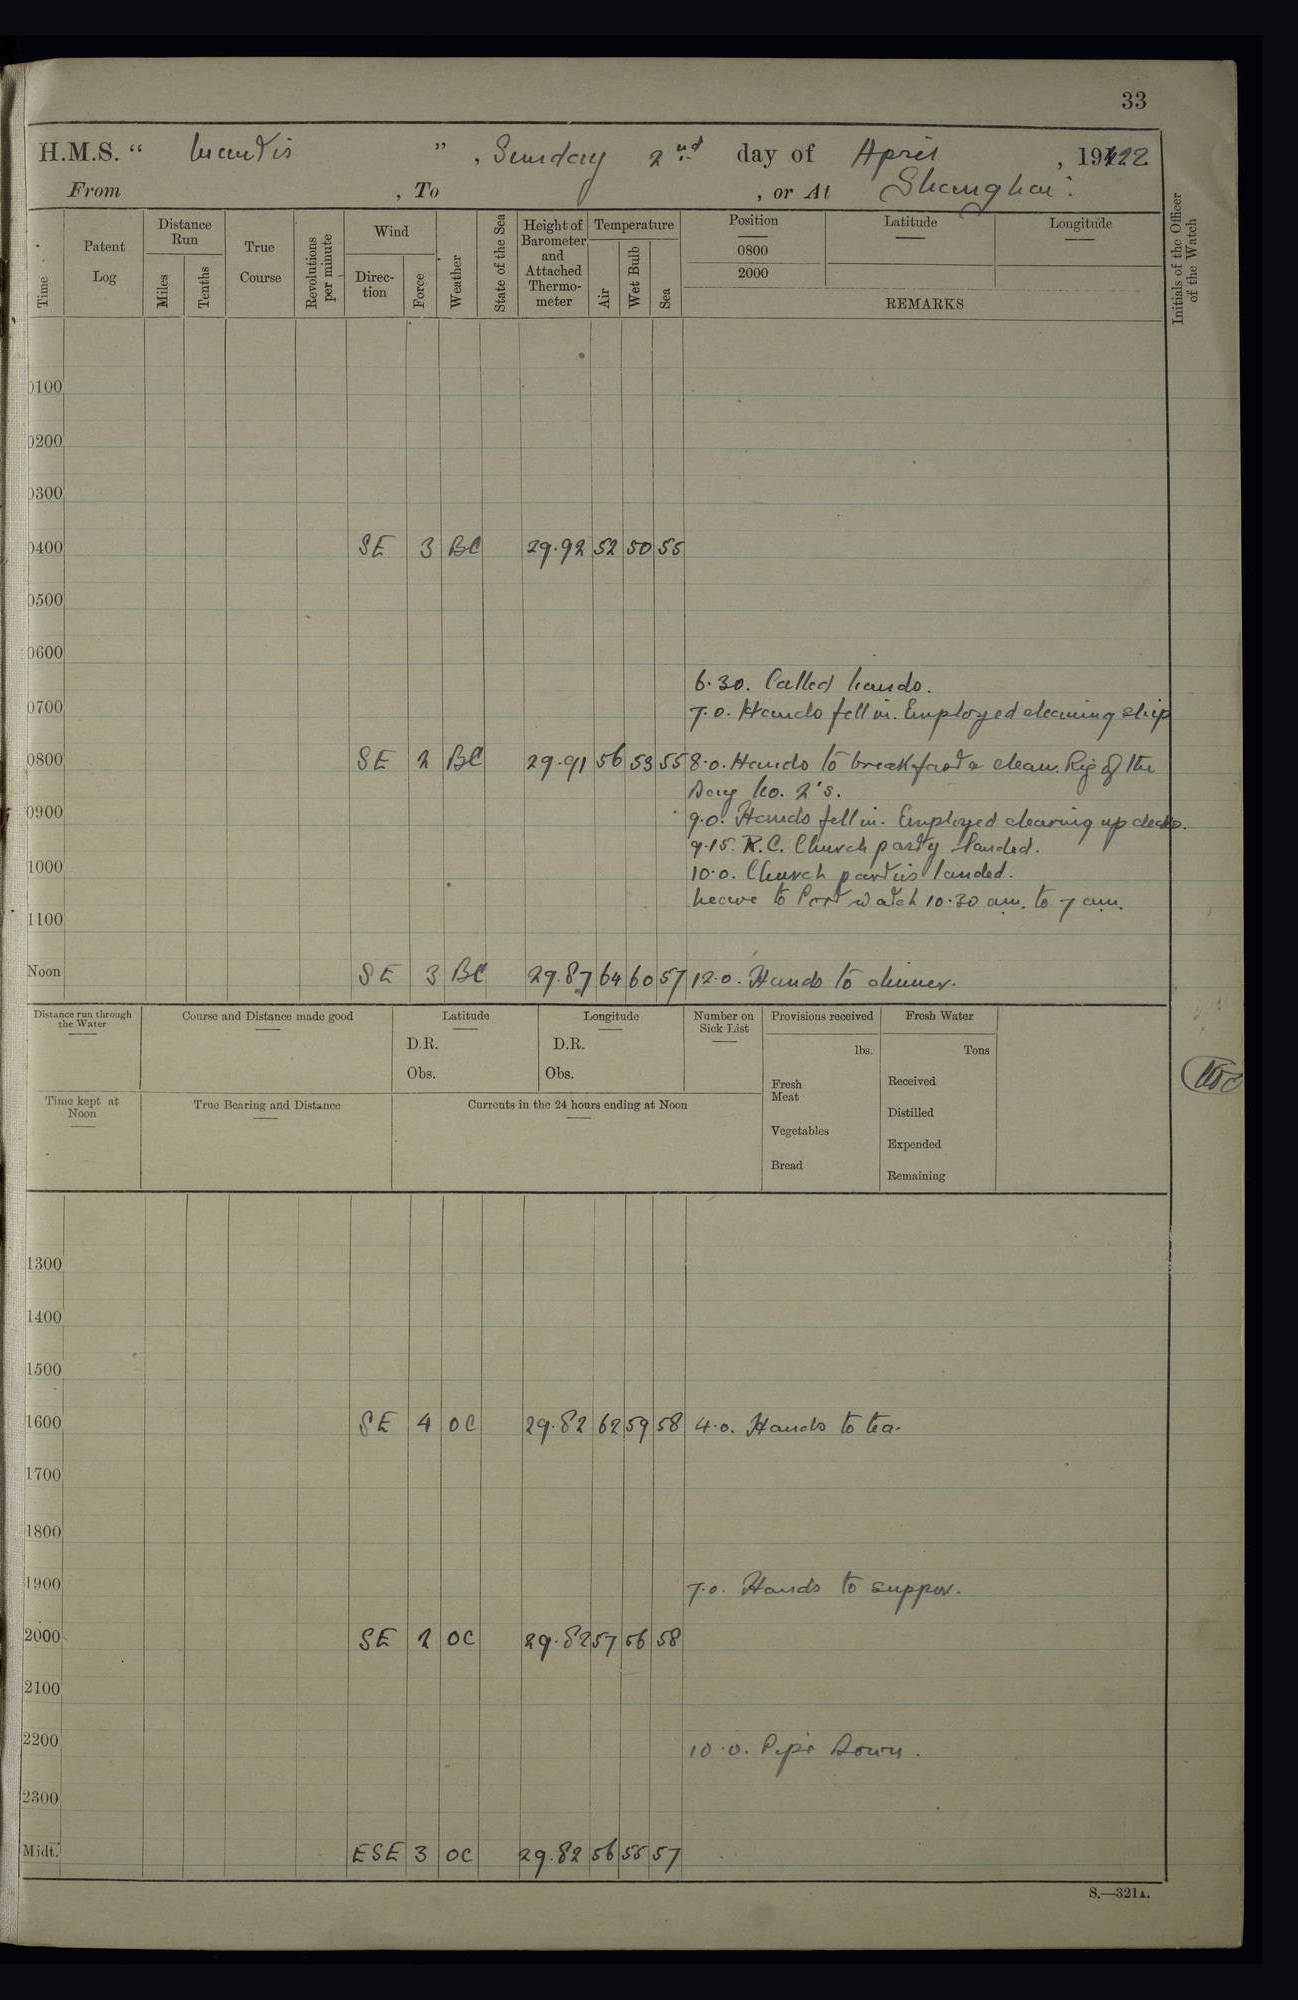 33
H.M.S. “ Mantis ” , Sunday 2nd day of April , 1922
From , To , or At Shanghai.
Time
Patent Log
Distance Run
Miles
Tenths
True Course
Revolutions per minute
Wind
Direction
Force
Weather
State of the Sea
Height of Barometer and Attached Thermometer
Temperature
Air
Wet Bulb
Sea
Position
0800
2000
Latitude
Longitude
REMARKS
Initials of the Officer of the Watch
0100
0200
0300
0400 SE 3 BC 29.92 52 50 55
0500
0600
6.30. Called hands.
0700 7.0. Hands fell in. Employed cleaning ship
0800 SE 2 BC 29.91 56 53 55 8.0. Hands to breakfast & clean. Rig of the
Day No. 2's.
0900 9.0. Hands fell in. Employed clearing up decks.
9.15. R.C. Church party landed.
1000 10.0. Church parties landed.
Leave to Port watch 10.30 am. to 7 am.
1100
Noon SE 3 BC 29.87 64 60 57 12.0. Hands to dinner.
Distance run through the Water
Course and Distance made good
Latitude
D.R.
Obs.
Longitude
D.R.
Obs.
Number on Sick List
Provisions received
lbs.
Fresh Meat
Vegetables
Bread
Fresh Water
Tons
Received
Distilled
Expended
Remaining
Time kept at Noon
True Bearing and Distance
Currents in the 24 hours ending at Noon
1300
1400
1500
1600 SE 4 OC 29.82 62 59 58 4.0. Hands to tea.
1700
1800
1900 7.0. Hands to supper.
2000 SE 2 OC 29.82 57 56 58
2100
2200 10.0. Pipe Down.
2300
Midt. ESE 3 OC 29.82 56 55 57
S.—321A.